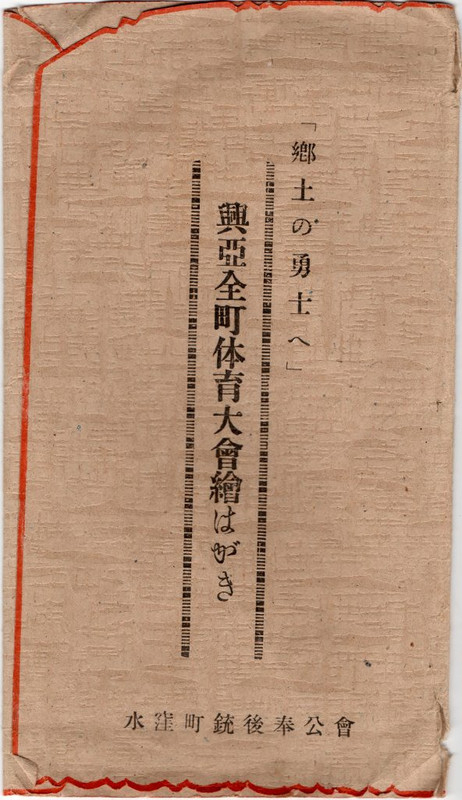 「郷土の勇士へ」
興亞全町体育大會繪はがき
水窪町銃後奉公會